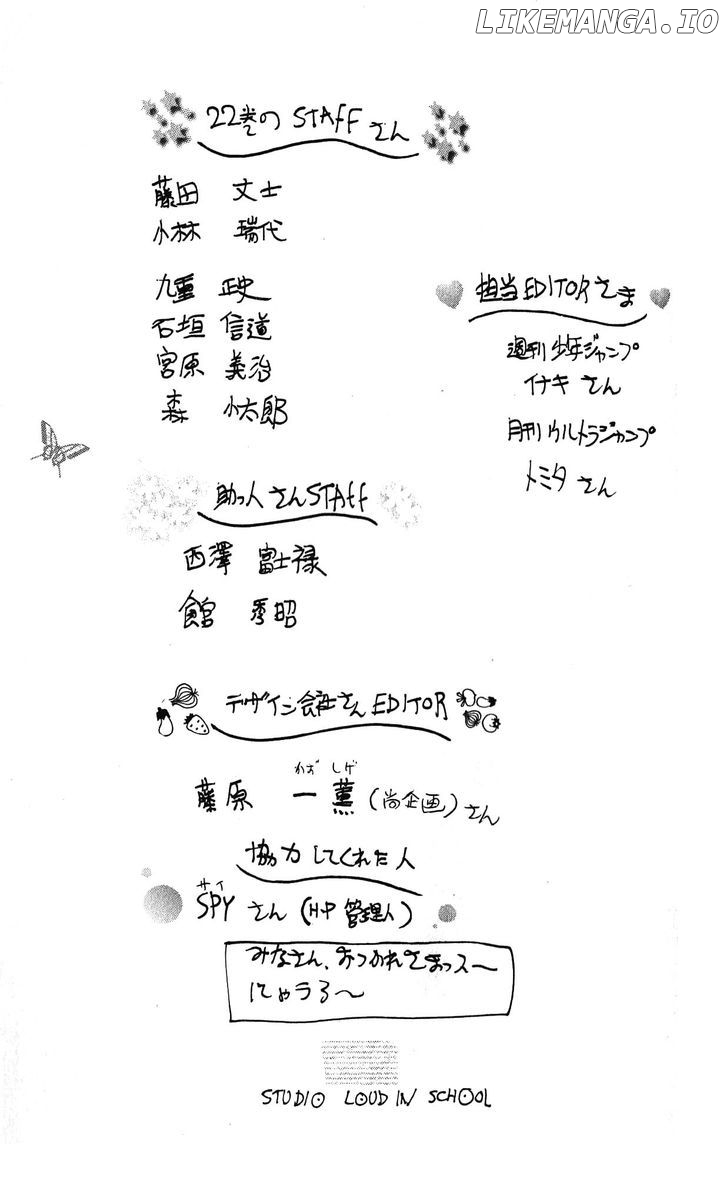 LIKEMANGA.IO
22巻の STAFF さん
藤田 丈士
小林 瑞代
九重 政史
石垣 信道
宮原 義治
森 小太郎
担当EDITORさま
週刊少年ジャンプ
イナキ さん
月刊ウルトラジャンプ
トミタ さん
助っ人さんSTAFF
西澤 富士禄
館 秀昭
デザイン会社さんEDITOR
かず しげ
藤原 一薫(尚企画)さん
協力してくれた人
サイ
SPY さん(HP管理人)
みなさん、おつかれさまっス〜
にゃうる〜
STUDIO LOUD IN SCHOOL